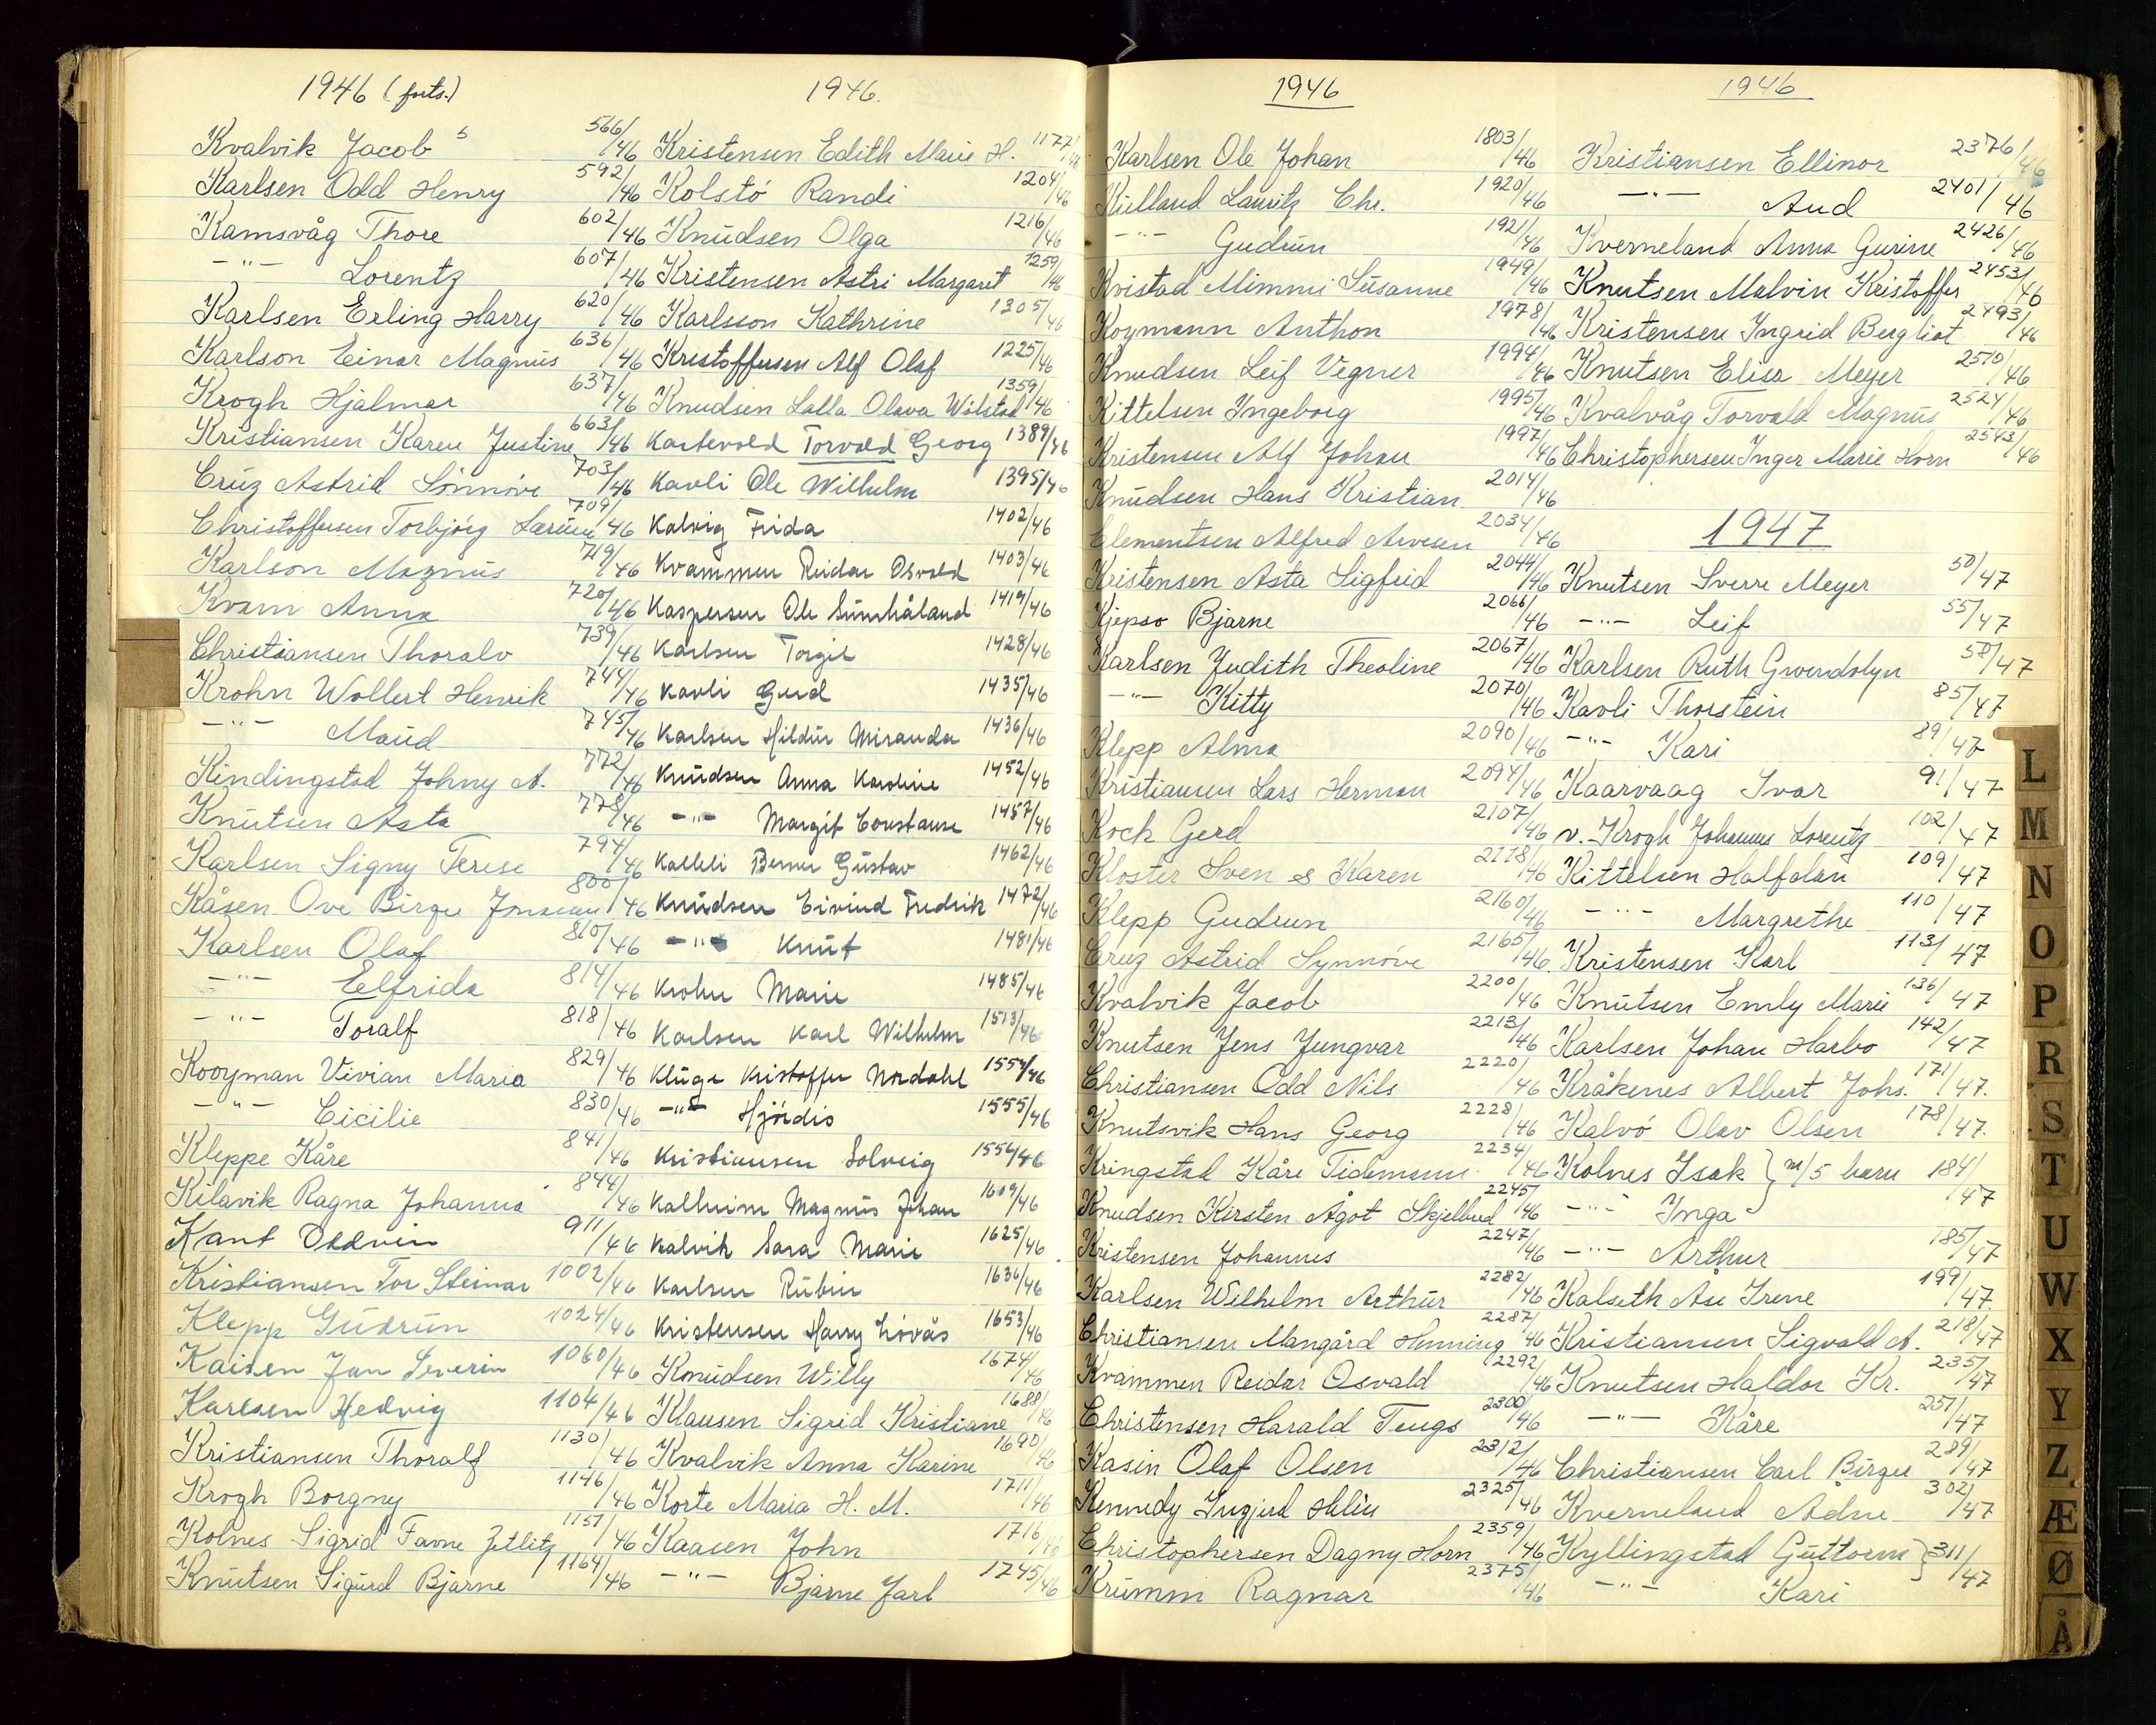 1946 (forts.)
Kvalvik Jacob S 566/46
Karlsen Odd Henry 592/46
Kamsvåg Thore 602/46
—"— Lorentz 607/46
Karlsen Erling Harry 620/46
Karlson Einar Magnus 636/46
Krogh Hjalmar 637/46
Kristiansen Karen Justine 663/46
Cruz Astrid Sönnöve 703/46
Christoffersen Torbjörg 709/46
Karlson Magnus 719/46
Kvam Anna 720/46
Christiansen Thoralv 739/46
Krohn Wollert Henrik 744/46
—"— Maud 745/46
Kindingstad Johny A. 772/46
Knutsen Asta 778/46
Karlsen Signy Terese 794/46
Kåsen Ove Birger 800/46
Karlsen Olaf 810/46
—"— Elfrida 814/46
—"— Toralf 818/46
Kooyman Vivian Maria 829/46
—"— Cicilie 830/46
Kleppe Kåre 841/46
Kilavik Ragna Johanna 844/46
Kant Oddvin 911/46
Kristiansen Tor Steinar 1002/46
Klepp Gudrun 1024/46
Kaisen Jan Severin 1060/46
Karlsen Hedvig 1104/46
Kristiansen Thoralf 1130/46
Krogh Borgny 1146/46
Kolnes Sigrid Favne Zetlitz 1151/46
Knutsen Sigurd Bjarne 1164/46
1946.
Kristensen Edith Marie H. 1177/46
Kolstö Randi 1204/46
Knudsen Olga 1216/46
Kristensen Astri Margaret 1259/46
Karlsson Kathrine 1305/46
Kristoffersen Alf Olaf 1225/46
Knudsen Lalla Olava Wölstad 1359/46
Kartevold Torvald Georg 1389/46
Kavli Ole Wilhelm 1395/46
Kalvig Frida 1402/46
Kvammen Reidar Osvald 1403/46
Kaspersen Ole Sunnhåland 1419/46
Karlsen Torgil 1428/46
Kavli Gerd 1435/46
Karlsen Hildur Miranda 1436/46
Knudsen Anna Karoline 1452/46
—"— Margit Constanse 1457/46
Kalleli Berner Gustav 1462/46
Knudsen Eivind Fredrik 1472/46
—"— Knut 1481/46
Krohn Marie 1485/46
Karlsen Karl Wilhelm 1513/46
Kluge Kristoffer Nordahl 1554/46
—"— Hjördis 1555/46
Kristiansen Solveig 1556/46
Kallheim Magnus Johan 1609/46
Kalvik Sara Marie 1625/46
Karlsen Rubin 1636/46
Kristensen Harry Lövås 1653/46
Knudsen Willy 1674/46
Klausen Sigrid Kristiane 1688/46
Kvalvik Anna Karine 1690/46
Korte Maria H. M. 1711/46
Kaasen John 1716/46
—"— Bjarne Jarl 1745/46
1946
Karlsen Ole Johan 1803/46
Kielland Lauritz Chr. 1920/46
—"— Gudrun 1921/46
Kvistad Mimmi Susanne 1949/46
Koymann Anthon 1978/46
Knudsen Leif Vegner 1994/46
Kittelsen Ingeborg 1995/46
Kristensen Alf Johan 1997/46
Knudsen Hans Kristian 2014/46
Clementsen Alfred Arvesen 2034/46
Kristensen Asta Sigfrid 2044/46
Kjepso Bjarne 2066/46
Karlsen Judith Theoline 2067/46
—"— Kitty 2070/46
Klepp Alma 2090/46
Kristiansen Lars Herman 2094/46
Kock Gerd 2107/46
Kloster Sven & Karen 2118/46
Klepp Gudrun 2160/46
Cruz Astrid Synnöve 2165/46
Kvalvik Jacob 2200/46
Knutsen Jens Jungvar 2213/46
Christiansen Odd Nils 2220/46
Knutsvik Hans Georg 2228/46
Kringstad Kåre Tidemann 2234/46
Knudsen Kirsten Ågot Skjelbred 2245/46
Kristensen Johannes 2247/46
Karlsen Wilhelm Arthur 2282/46
Christiansen Mangård Henning 2287/46
Kvammen Reidar Osvald 2292/46
Christensen Harald Tengs 2300/46
Kasin Olaf Olsen 2312/46
Kennedy Ingjerd Helen 2325/46
Christophersen Dagny Horn 2359/46
Krumm Ragnar 2375/46
1946
Kristiansen Ellinor 2376/46
—"— Aud 2401/46
Kverneland Anna Gurine 2426/46
Knutsen Malvin Kristoffer 2453/46
Kristensen Ingrid Bergliot 2493/46
Knutsen Elisa Meyer 2510/46
Kvalvåg Torvald Magnus 2524/46
Christophersen Inger Marie Horn 2543/46
1947
Knutsen Sverre Meyer 50/47
—"— Leif 55/47
Karlsen Ruth Gwendolyn 58/47
Kavli Thorstein 85/47
—"— Kari 89/47
Kaarvaag Ivar 91/47
v. Krogh Johannes Lorentz 102/47
Kittelsen Halfdan 109/47
—"— Margrethe 110/47
Kristensen Karl 113/47
Knutsen Emly Marie 136/47
Karlsen Johan Harbo 142/47
Kråkenes Albert Johs. 171/47.
Kalvö Olav Olsen 178/47.
Kolnes Isak } m/5 barn 184/47
—"— Inga
—"— Arthur 185/47
Kalseth Åse Irene 199/47.
Kristiansen Sigvald A. 218/47
Knutsen Haldor Kr. 235/47
—"— Kåre 251/47
Christiansen Carl Birger 289/47
Kverneland Ådne 302/47
Kyllingstad Guttorm } 311/47
—"— Kari
L
M
N
O
P
R
S
T
U
W
X
Y
Z.
Æ
Ø
Å